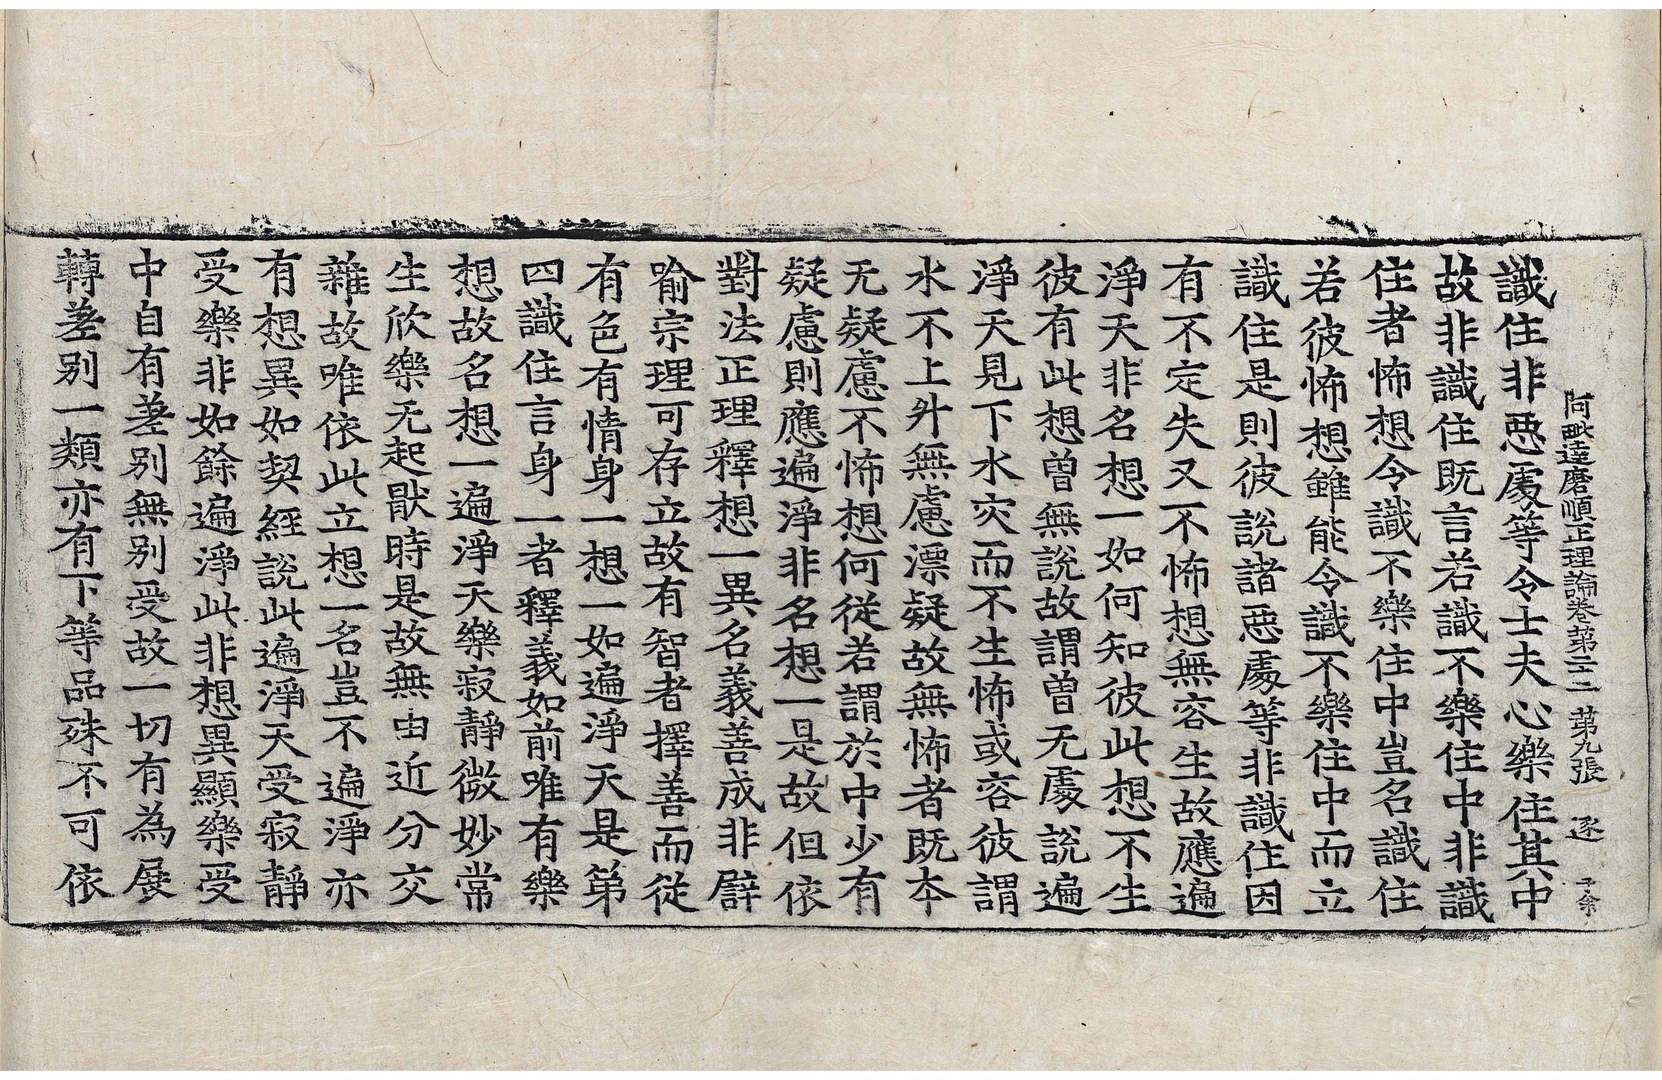 阿毗達磨順正理論卷第二十二 第九張 逐 子余
識住非惡處等令士夫心樂住其中
故非識住既言若識不樂住中非識
住者怖想令識不樂住中豈名識住
若彼怖想雖能令識不樂住中而立
識住是則彼說諸惡處等非識住因
有不定失又不怖想無容生故應遍
淨天非名想一如何知彼此想不生
彼有此想曾無說故謂曾无處說遍
淨天見下水灾而不生怖或容彼謂
水不上升無慮漂疑故無怖者既本
无疑慮不怖想何從若謂於中少有
疑慮則應遍淨非名想一是故但依
對法正理釋想一異名義善成非譬
喻宗理可存立故有智者擇善而從
有色有情身一想一如遍淨天是第
四識住言身一者釋義如前唯有樂
想故名想一遍淨天樂寂靜微妙常
生欣樂无起猒時是故無由近分交
雜故唯依此立想一名豈不遍淨亦
有想異如契經說此遍淨天受寂靜
受樂非如餘遍淨此非想異顯樂受
中自有差别無别受故一切有為展
轉差别一類亦有下等品殊不可依